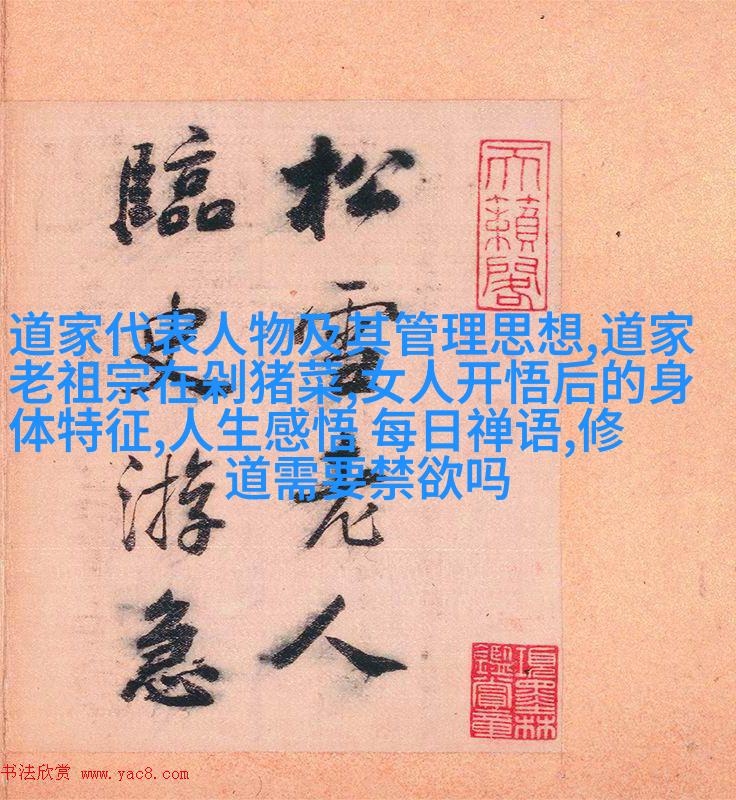 松雪老人
臨史游急
天籟閣
項墨林
鑑賞章
道家代表人物及其管理思想,道家
老祖宗在剁猪菜,女人开悟后的身
体特征,人生感悟 每日禅语,修
道需要禁欲吗
书法欣赏 www.yac8.com